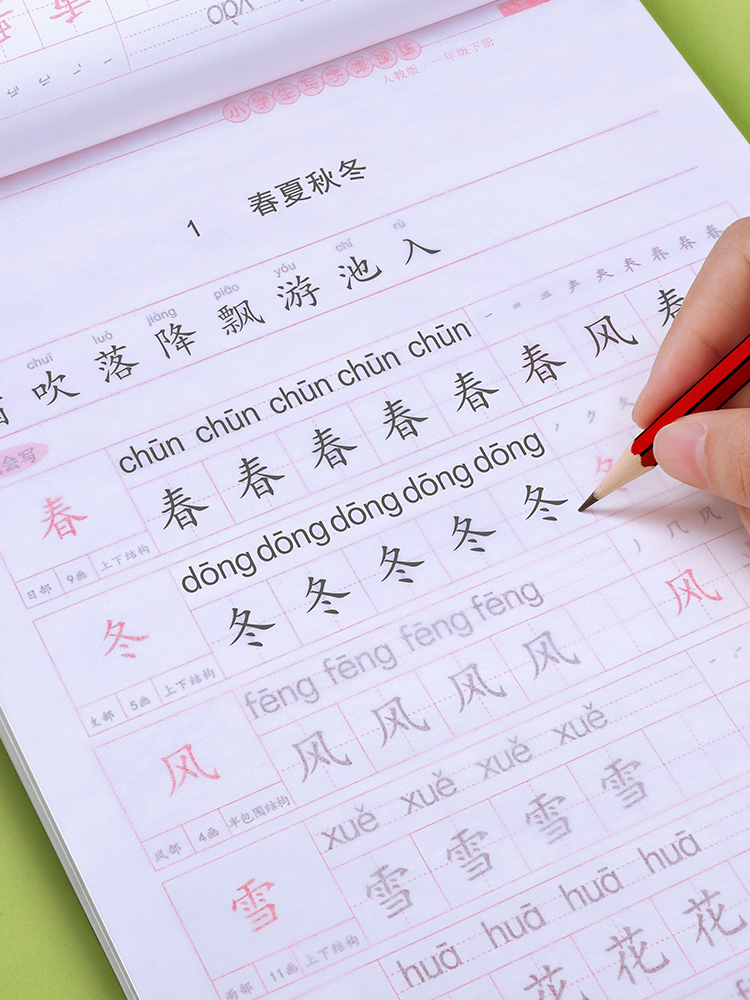 小学生写字课课练
人教版·一年级下册
1 春夏秋冬
chuī luò jiàng piāo yóu chí rù
吹 落 降 飘 游 池 入
会写
chūn chūn chūn chūn chūn
春 春 春 春 春 春 春 风 春
日部 9画 上下结构
dōng dōng dōng dōng dōng
冬 冬 冬 冬 冬 冬
夂部 5画 上下结构
fēng fēng fēng fēng
风 风 风 风 风 风
风部 4画 半包围结构
xuě xuě xuě xuě
雪 雪 雪 雪 雪
雨部 11画 上下结构
huā huā huā huā
花 花 花